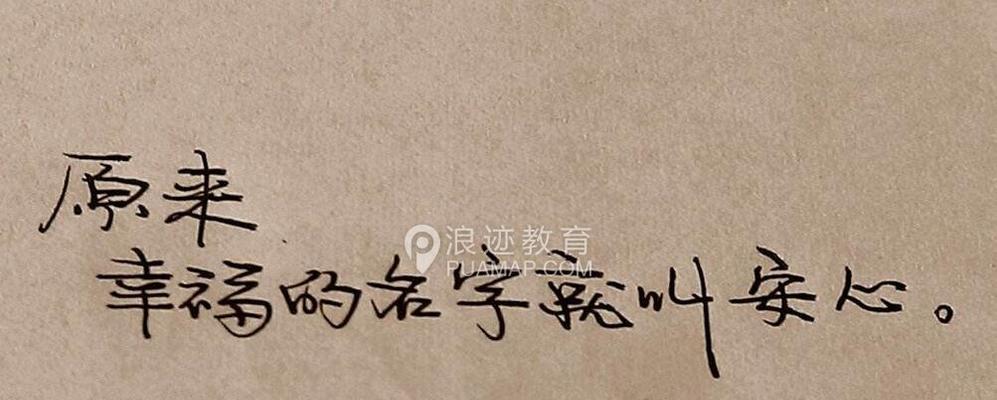 原来
浪迹教育
PUAMAP.COM
幸福的名字就叫安心。